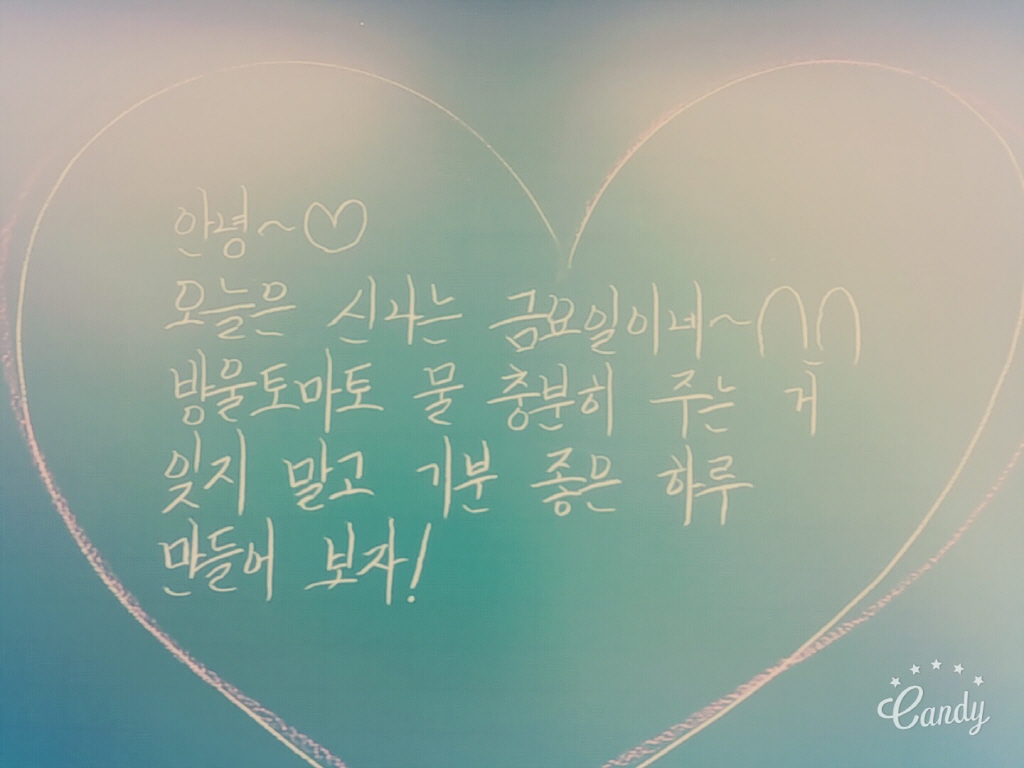 안녕~♡
오늘은 신나는 금요일이네~^_^
방울토마토 물 충분히 주는 거
잊지 말고 기분 좋은 하루
만들어 보자!
Candy